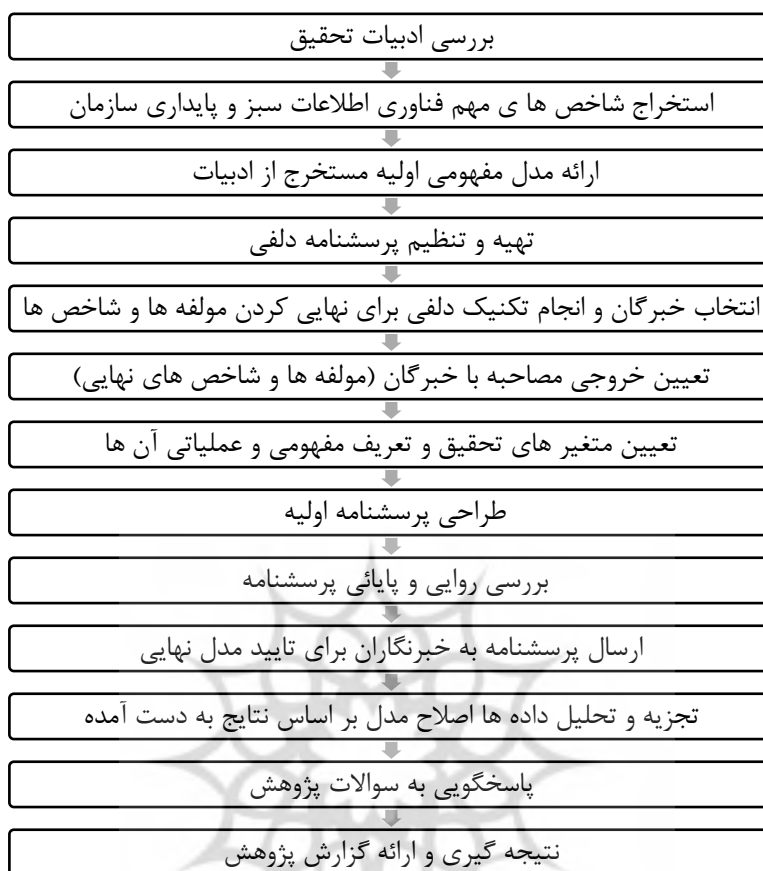 بررسی ادبیات تحقیق
استخراج شاخص ها ی مهم فناوری اطلاعات سبز و پایداری سازمان
ارائه مدل مفهومی اولیه مستخرج از ادبیات
تهیه و تنظیم پرسشنامه دلفی
انتخاب خبرگان و انجام تکنیک دلفی برای نهایی کردن مولفه ها و شاخص ها
تعیین خروجی مصاحبه با خبرگان (مولفه ها و شاخص های نهایی)
تعیین متغیر های تحقیق و تعریف مفهومی و عملیاتی آن ها
طراحی پرسشنامه اولیه
بررسی روایی و پایائی پرسشنامه
ارسال پرسشنامه به خبرنگاران برای تایید مدل نهایی
تجزیه و تحلیل داده ها اصلاح مدل بر اساس نتایج به دست آمده
پاسخگویی به سوالات پژوهش
نتیجه گیری و ارائه گزارش پژوهش